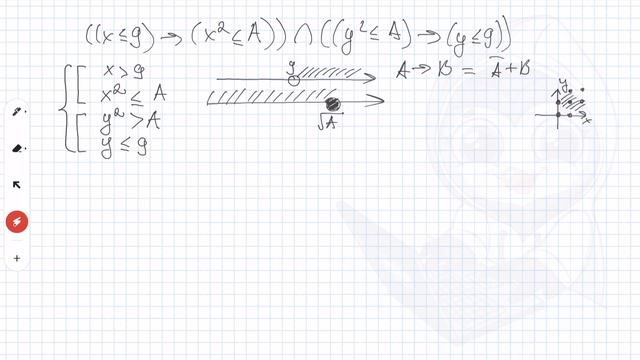 ((x≤g)→(x²≤A))∩((y²≤A)→(y≤g))
x>g
x²≤A
y²>A
y≤g
g
√A
A→B = A̅+B
y
x